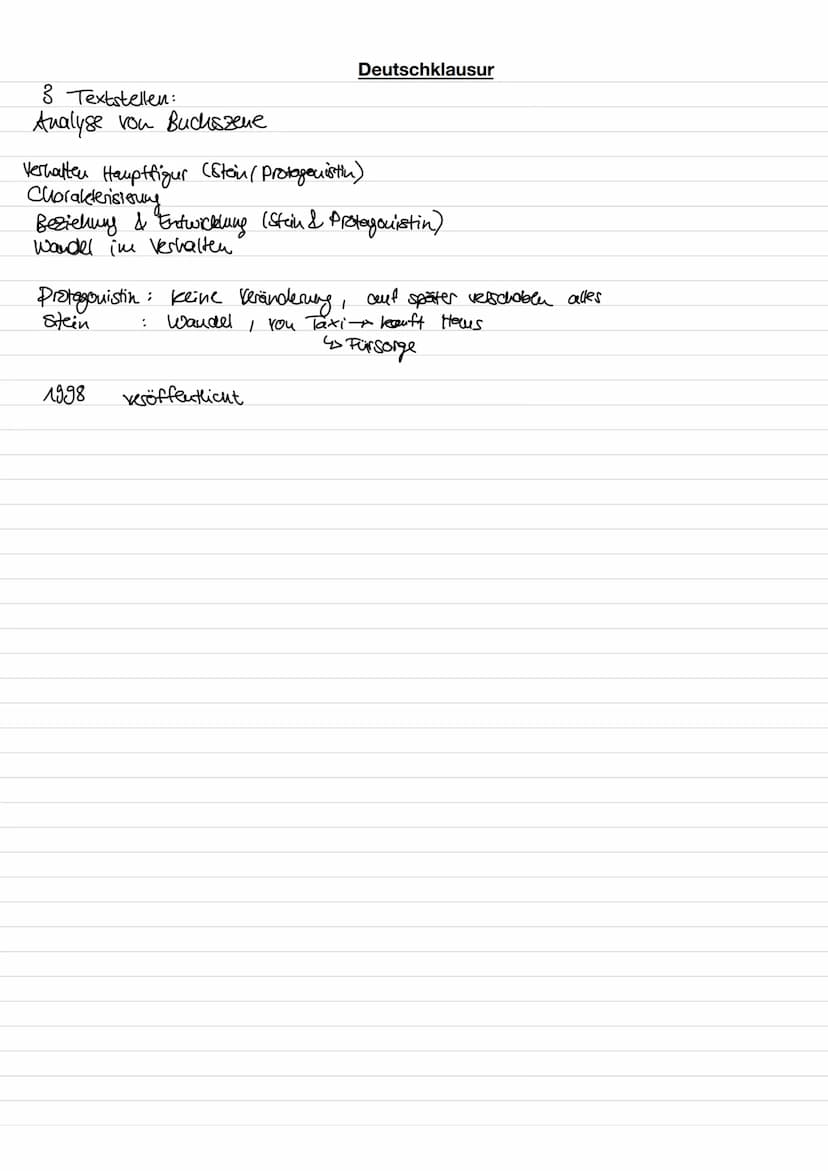 Deutschklausur
3 Textstellen:
Analyse von Buchszene
Verhalten Hauptfigur (Stein/Protagonistin)
Charakterisierung
Beziehung & Entwicklung (Stein & Protagonistin)
Wandel im Verhalten
Protagonistin : keine Veränderung, auf später verschoben alles
Stein : Wandel, von Taxi → kauft Haus
↳ Fürsorge
1998 veröffentlicht